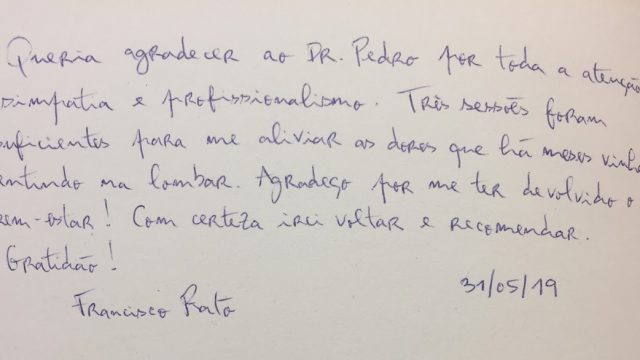 Queria agradecer ao Dr. Pedro por toda a atenção
simpatia e profissionalismo. Três sessões foram
suficientes para me aliviar as dores que há meses vinha
sentindo na lombar. Agradeço por me ter devolvido o
bem-estar! Com certeza irei voltar e recomendar.
Gratidão!
31/05/19
Francisco Rato